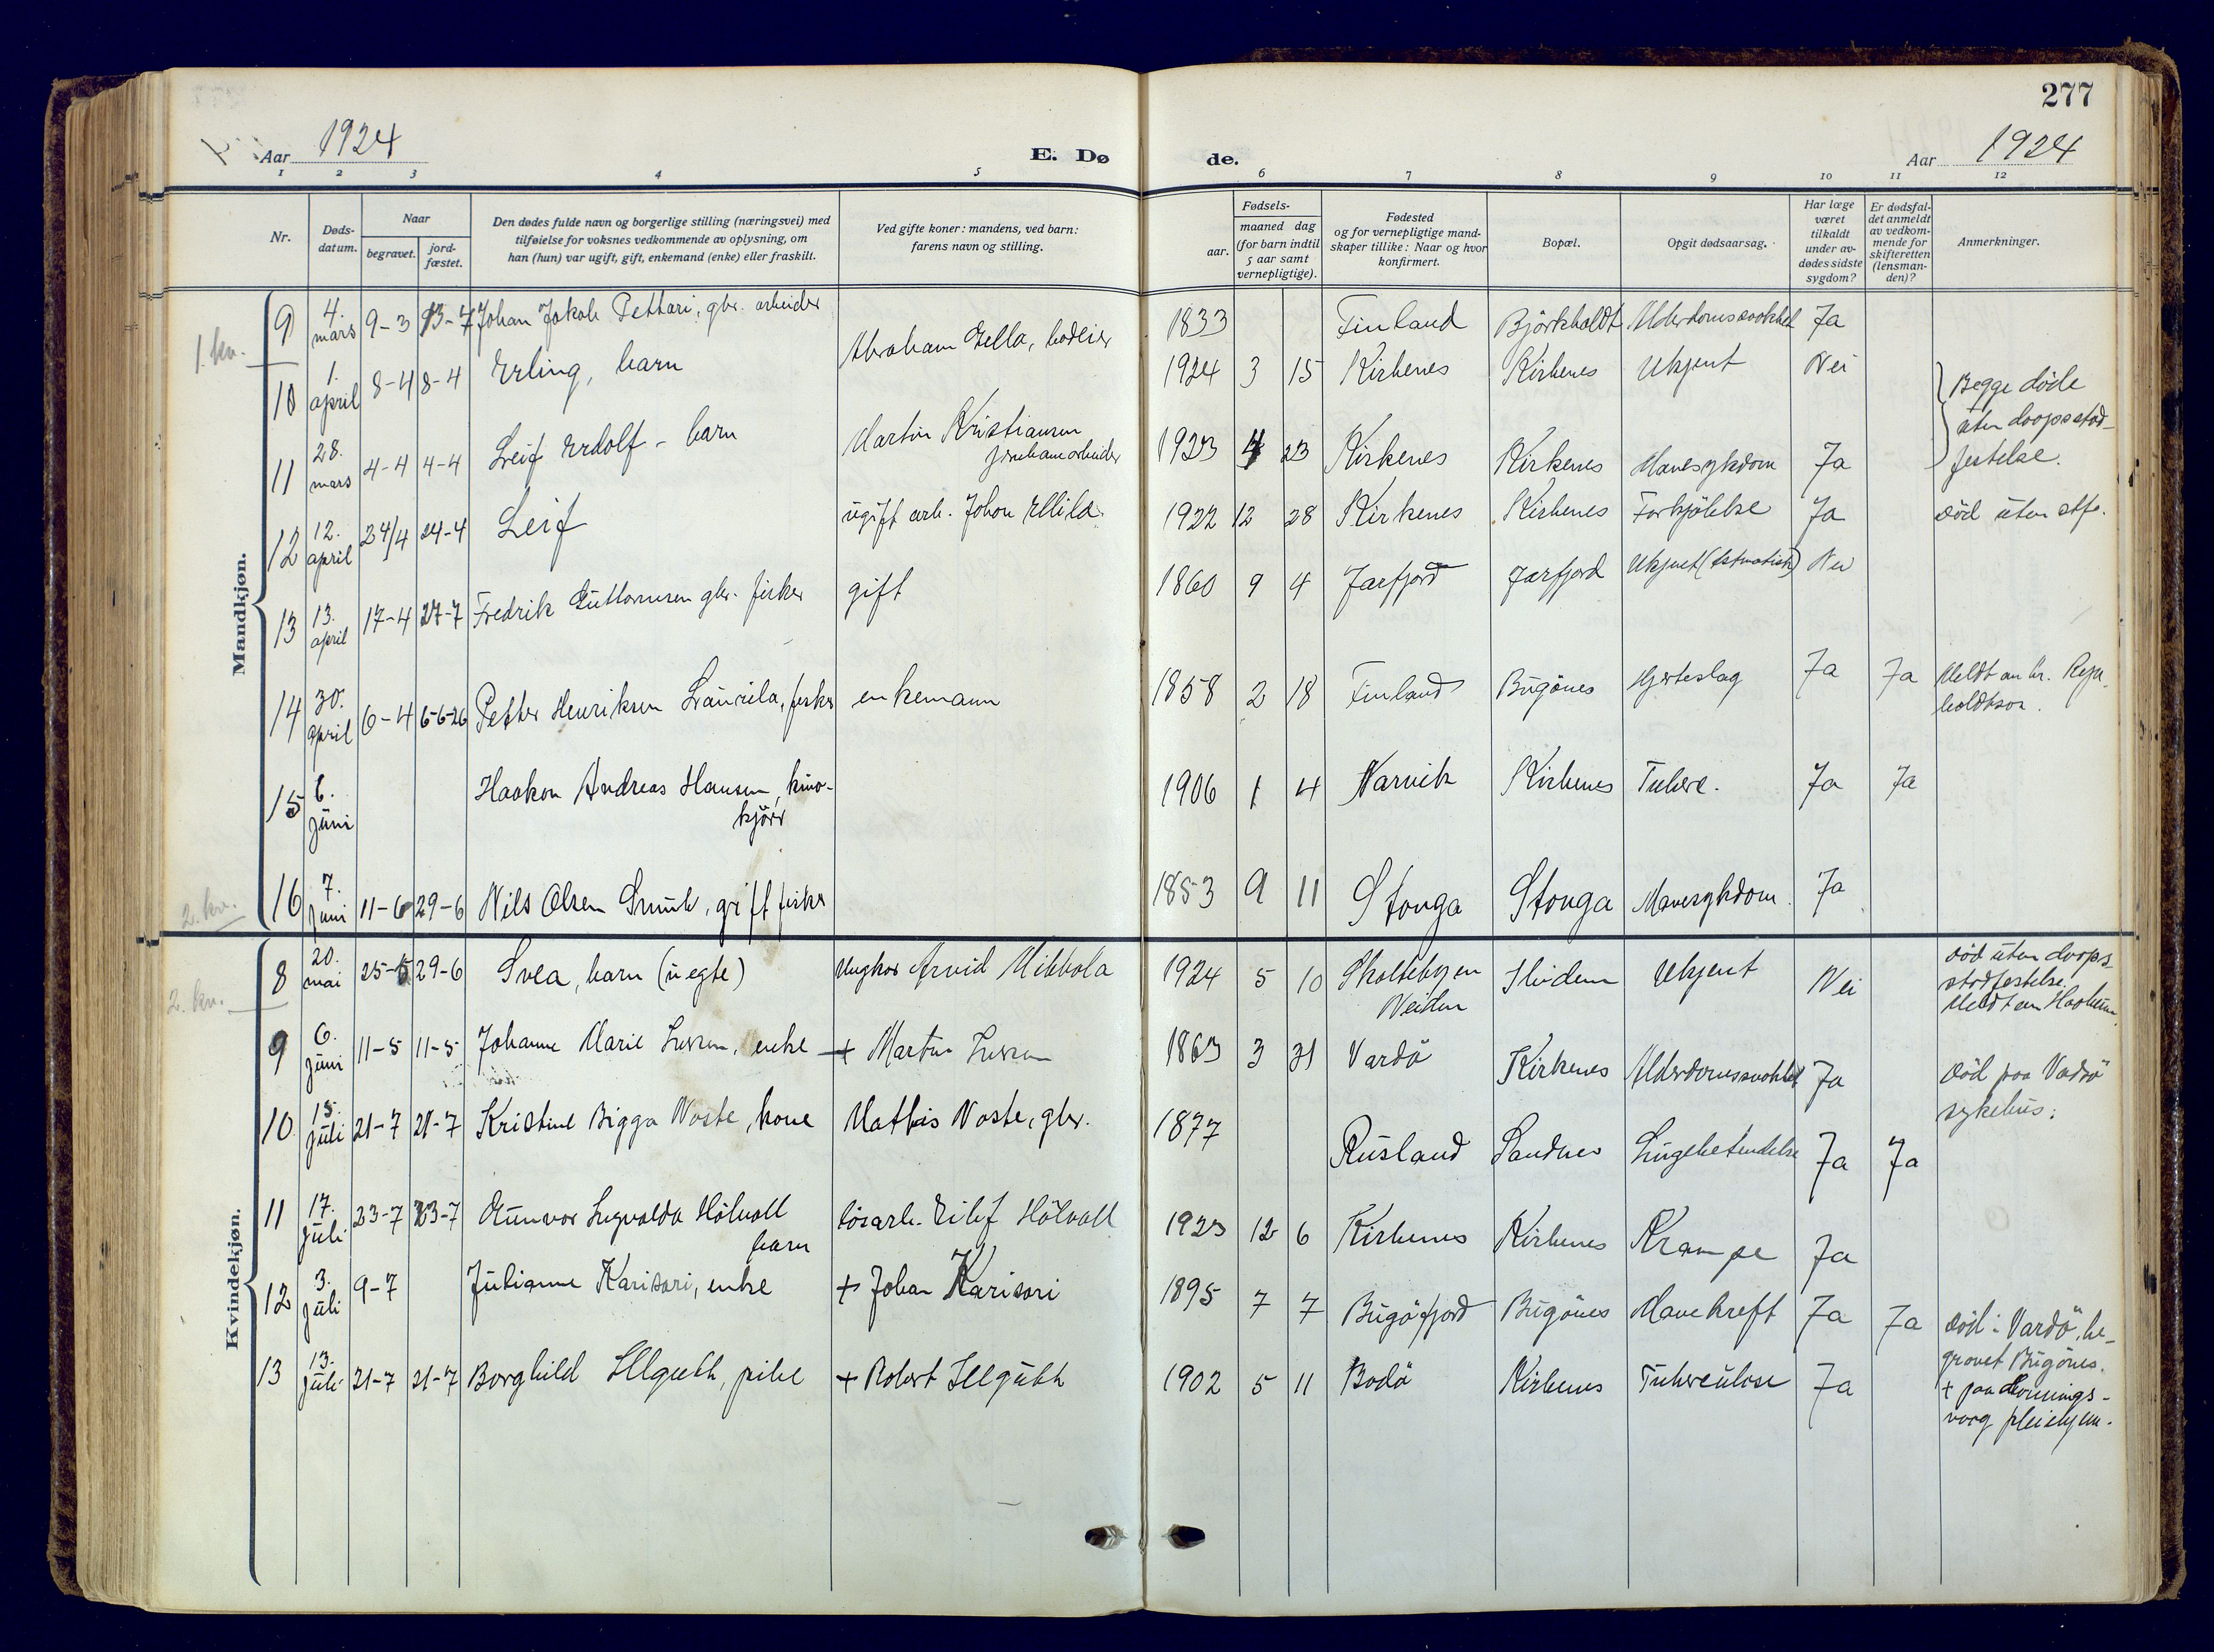 277
Aar 1924
E. Dø
de.
Aar 1924
1 2 3 4 5 6 7 8 9 10 11 12
Nr.
Døds-
datum.
Naar
begravet.
jord-
fæstet.
Den dødes fulde navn og borgerlige stilling (næringsvei) med
tilføielse for voksnes vedkommende av oplysning, om
han (hun) var ugift, gift, enkemand (enke) eller fraskilt.
Ved gifte koner: mandens, ved barn:
farens navn og stilling.
Fødsels-
aar.
maaned dag
(for barn indtil
5 aar samt
vernepligtige).
Fødested
og for vernepligtige mand-
skaper tillike: Naar og hvor
konfirmert.
Bopæl.
Opgit dødsaarsag.
Har læge
været
tilkaldt
under av-
dødes sidste
sygdom?
Er dødsfal-
det anmeldt
av vedkom-
mende for
skifteretten
(lensman-
den)?
Anmerkninger.
Mandkjøn.
1. kv.
9 4. mars 9-3 13-7 Johan Jakob Pettari, gbr. arbeider 1833 Finland Björkholdt Alderdomssvakhet Ja
10 1. april 8-4 8-4 Erling, barn Abraham Gella, 1924 3 15 Kirkenes Kirkenes Ukjent Nei
Begge døde
uten daapsstad-
festelse.
11 28. mars 4-4 4-4 Leif Erdolf - barn Martin Kristiansen
1923 4 23 Kirkenes Kirkenes Mavesykdom Ja
12 12. april 24/4 24-4 Leif ugift arb. Johan 1922 12 28 Kirkenes Kirkenes Forkjølelse Ja död uten stf.
13 13. april 17-4 27-7 Fredrik Guttormsen gbr. fisker gift 1860 9 4 Jarfjord Jarfjord Ukjent (astmatisk) Nei
14 30. april 6-4 6-6-26 Petter Henriksen Laurila, fisker enkemann 1858 2 18 Finland Bugönes Hjerteslag Ja Ja Meldt av hr.
15 6. juni Haakon Andreas Hansen, kino-
kjörer
1906 1 4 Narvik Kirkenes Tuberk. Ja Ja
2. kv.
16 7. juni 11-6 29-6 Nils Olsen gift fisker 1853 9 11 Stonga Stonga Mavesykdom Ja
Kvindekjøn.
2. kv.
8 20. mai 25-5 29-6 Svea, barn (uegte) Ungkar Arvid Mikkola 1924 5 10 Skoltebyen
Neiden
Ukjent Nei död uten daaps
stadfestelse.
9 6. juni 11-5 11-5 Johanne Marie enke + Martin 1863 3 31 Vardö Kirkenes Alderdomssvakhet Ja Död paa Vadsö
sykehus.
10 15. juli 21-7 21-7 Kristine Bigga Noste, kone Mathis Noste, gbr. 1877 Rusland Sandnes Lungebetendelse Ja Ja
11 17. juli 23-7 23-7 Gunvor Ingvalda Hölvoll
barn
lösarb. Eilif Hölvoll 1923 12 6 Kirkenes Kirkenes Krampe Ja
12 3. juli 9-7 Julianne Karisari, enke + Johan Karisari 1895 7 7 Bugöfjord Bugönes Mavekreft Ja Ja död i Vardö, be-
gravet Bugönes.
13 13. juli 21-7 21-7 Borghild Illguth, pike + Robert Illguth 1902 5 11 Bodö Kirkenes Tuberkulose Ja + paa Honnings-
vaag pleiehjem.